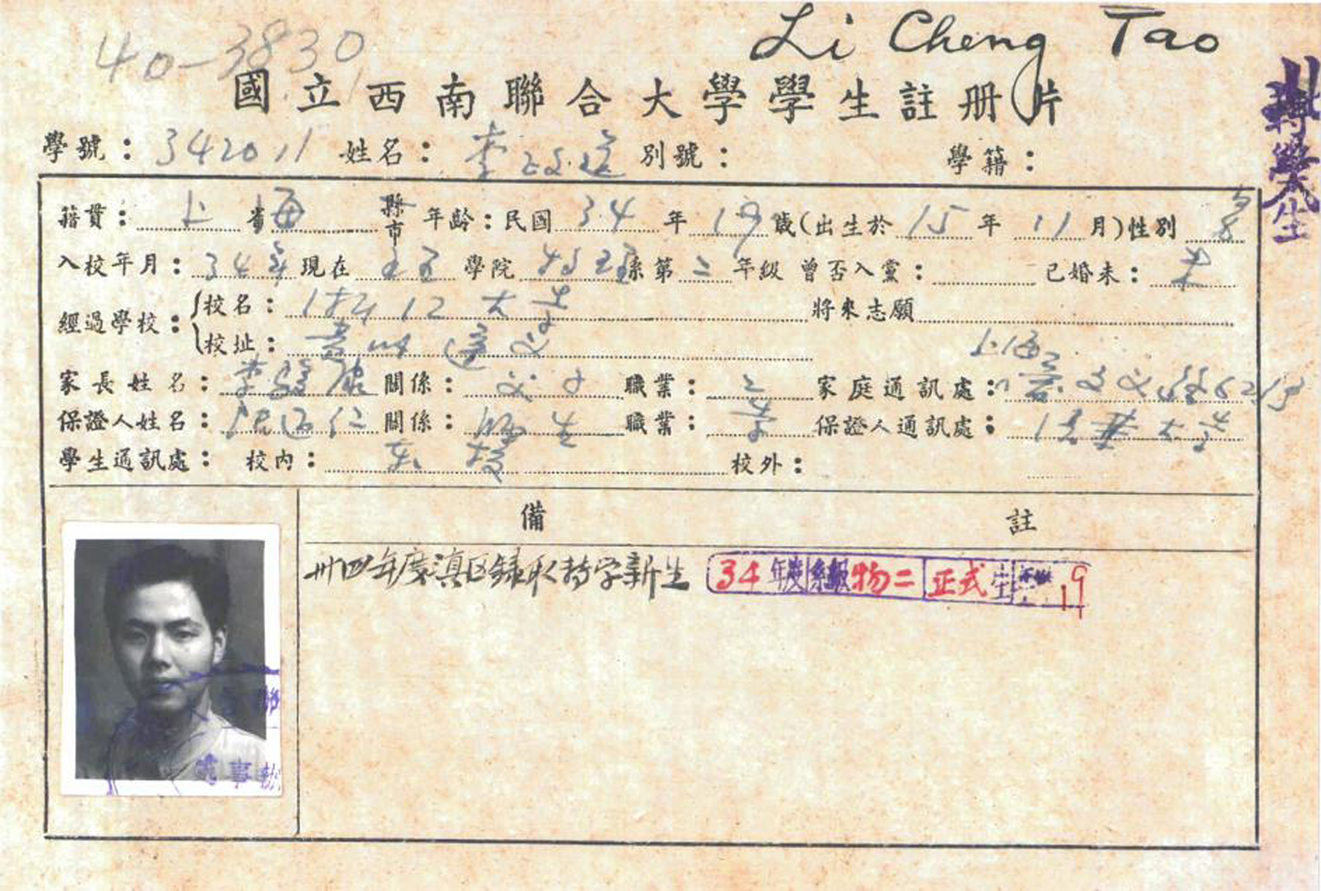 Li Cheng Tao
40-3830
國立西南聯合大學學生註册片
轉學生
學號：342011 姓名：李政道 別號： 學籍：
籍貫：上省海縣市 年齡：民國34年19歲(出生於15年11月)性別男
入校年月：34年 現在理學院物理系第二年級 曾否入黨： 已婚未：未
經過學校：校名：浙江大學 將來志願
校址：貴州遵义
家長姓名：李駿康 關係：父子 職業：工 家庭通訊處：上海
保證人姓名： 關係：師生 職業：学 保證人通訊處：大学
學生通訊處：校內： 校外：
備註
卅四年度滇区錄取轉学新生 34年度 系級 物二 正式生 19